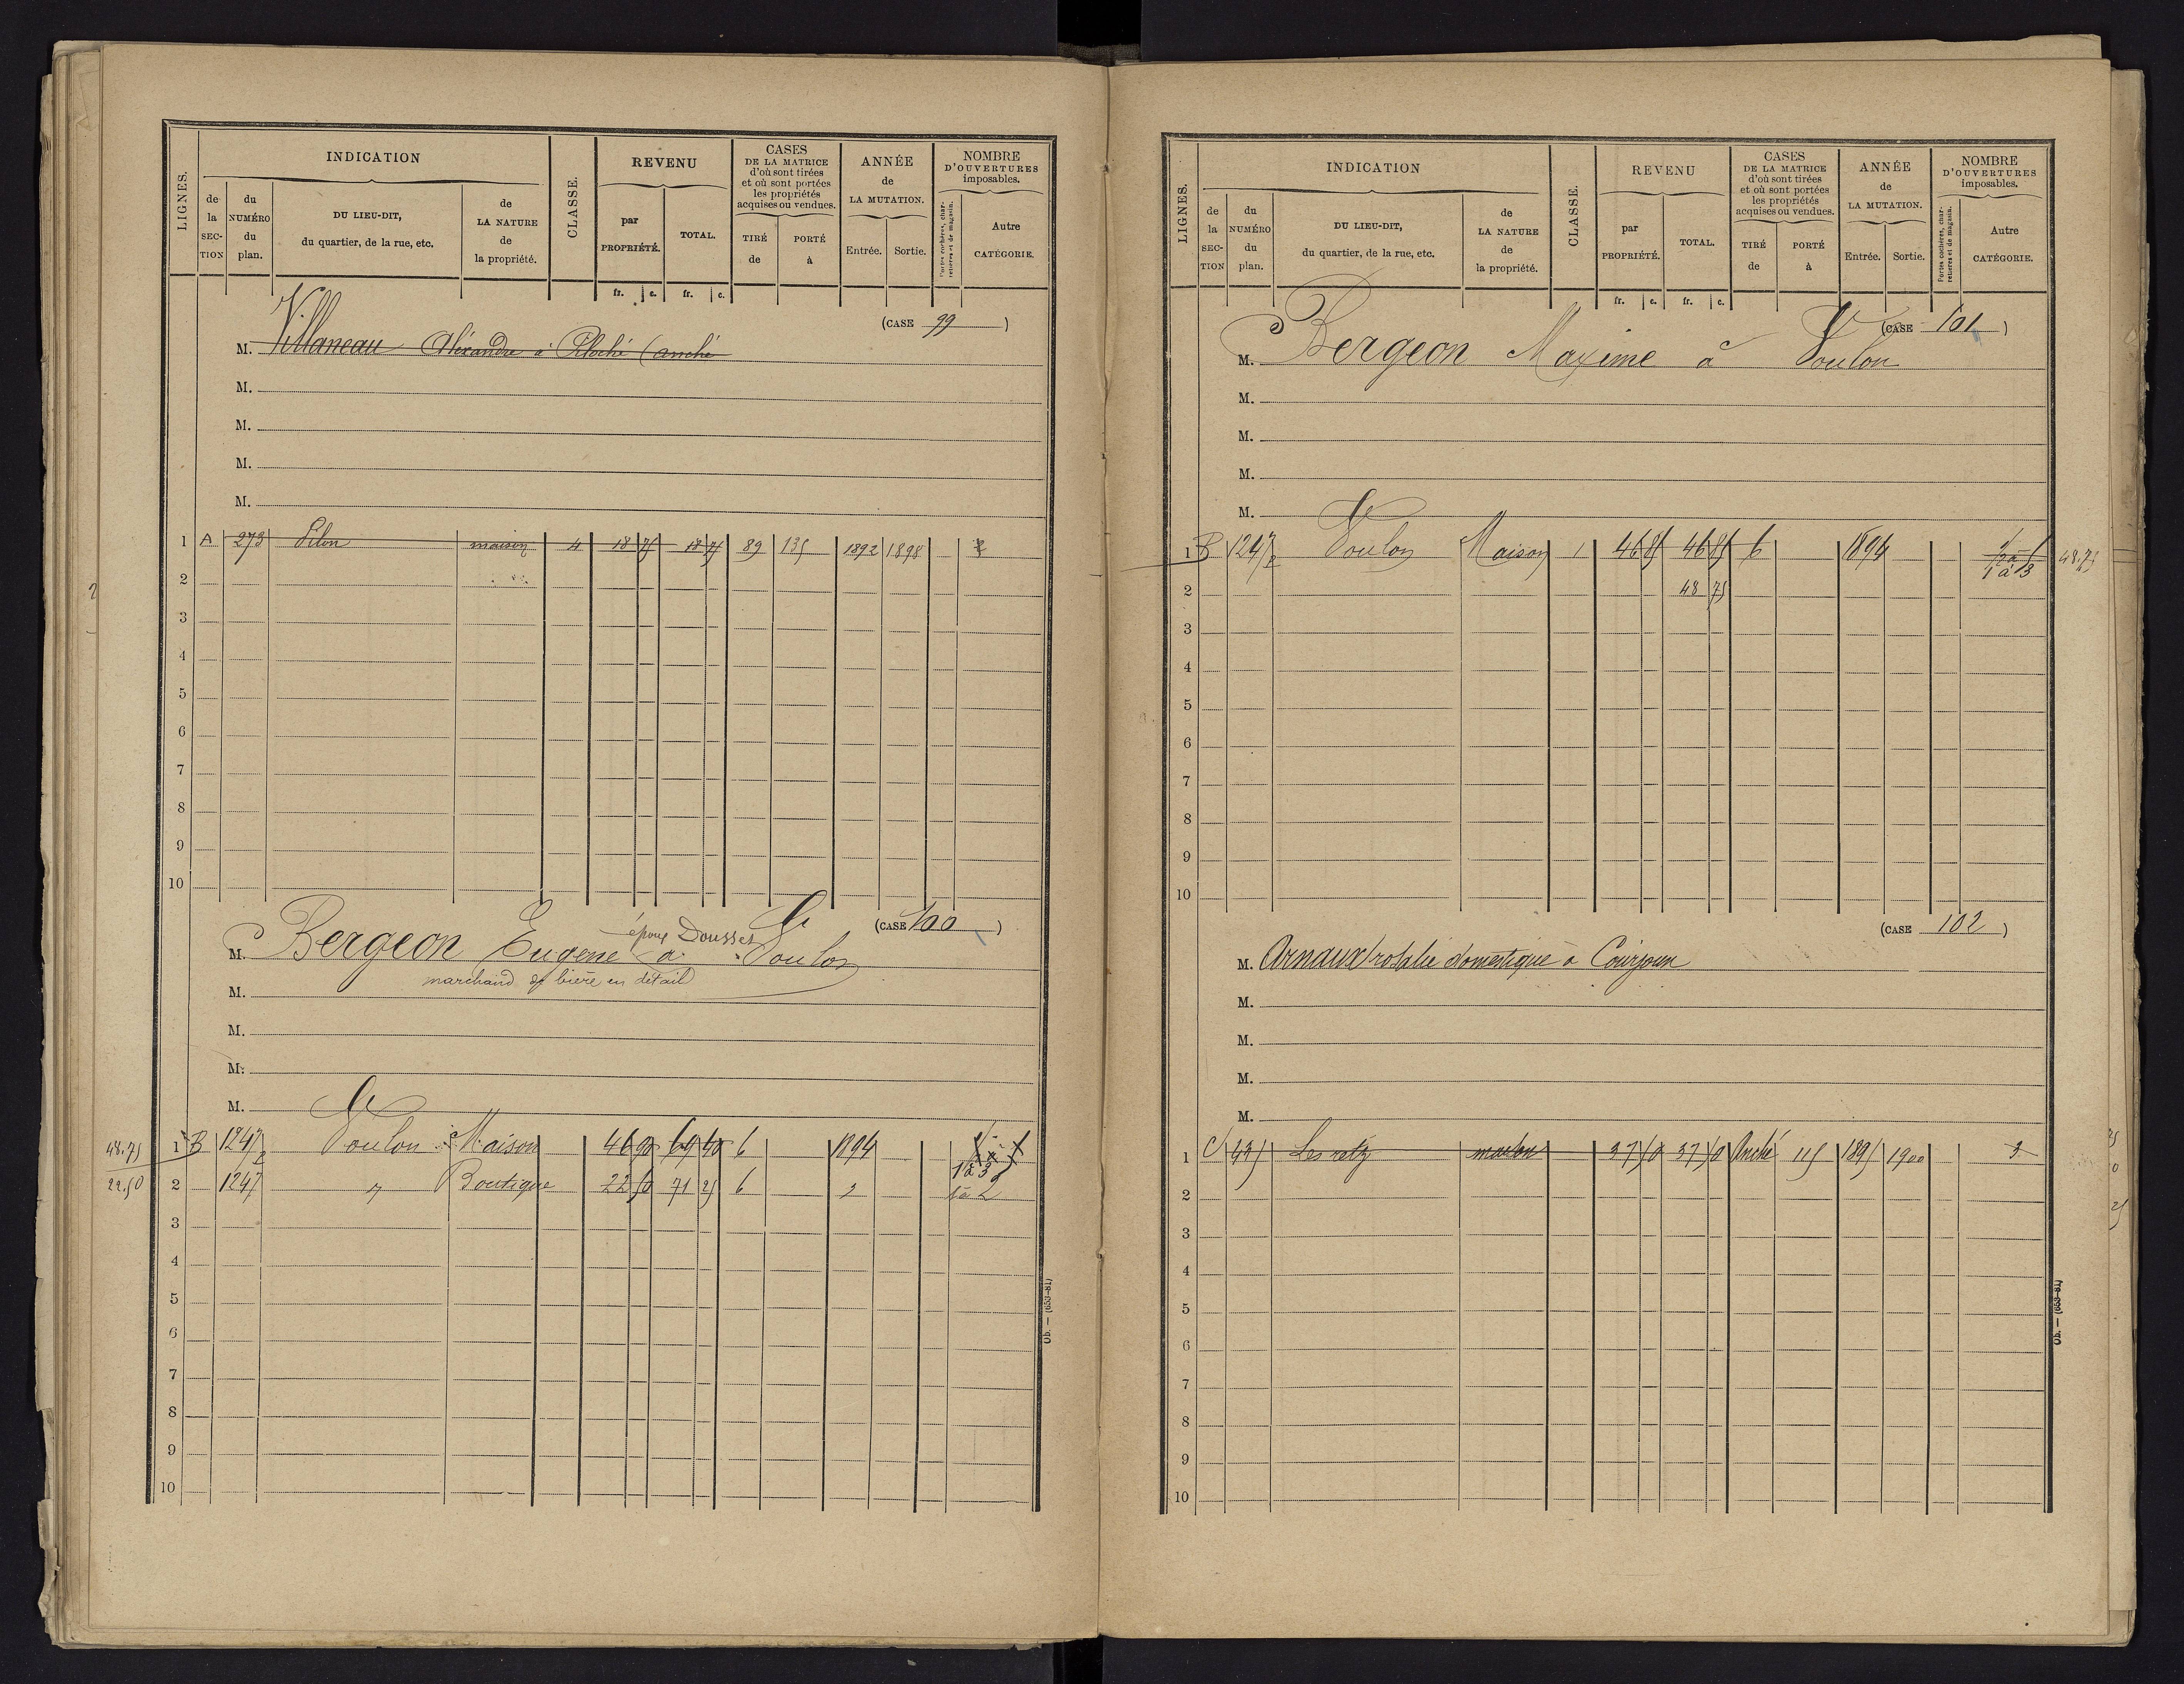 LIGNES.
INDICATION
de la SECTION
du NUMÉRO du plan.
DU LIEU-DIT, du quartier, de la rue, etc.
de LA NATURE de la propriété.
CLASSE.
REVENU
par PROPRIÉTÉ.
TOTAL.
CASES DE LA MATRICE d'où sont tirées et où sont portées les propriétés acquises ou vendues.
TIRÉ de
PORTÉ à
ANNÉE de LA MUTATION.
Entrée.
Sortie.
NOMBRE D'OUVERTURES imposables.
Portes cochères, charretières et de magasin.
Autre CATÉGORIE.
fr. c. fr. c.
(CASE 99 )
M. Villaneau Alexandre à (anché
M.
M.
M.
M.
1 A 273 maison 4 18 75 18 75 89 135 1892 1898
2
3
4
5
6
7
8
9
10
(CASE 100 )
époux Dousset
M. Bergeon Eugène à Voulon
marchand de bière en détail
M.
M.
M.
M.
48.75 1 B 1247 Voulon Maison 46 90 69 40 6 1894
1 à 3
22.50 2 1247 " Boutique 22 50 71 25 6 " 1 à 2
3
4
5
6
7
8
9
10
Ob. — (653-81)
LIGNES.
INDICATION
de la SECTION
du NUMÉRO du plan.
DU LIEU-DIT, du quartier, de la rue, etc.
de LA NATURE de la propriété.
CLASSE.
REVENU
par PROPRIÉTÉ.
TOTAL.
CASES DE LA MATRICE d'où sont tirées et où sont portées les propriétés acquises ou vendues.
TIRÉ de
PORTÉ à
ANNÉE de LA MUTATION.
Entrée.
Sortie.
NOMBRE D'OUVERTURES imposables.
Portes cochères, charretières et de magasin.
Autre CATÉGORIE.
fr. c. fr. c.
(CASE 101 )
M. Bergeon Maxime à Voulon
M.
M.
M.
M.
1 B 1247 Voulon Maison 1 46 85 46 85 6 1894 48.75
1 à 3
2 48 75
3
4
5
6
7
8
9
10
(CASE 102 )
M. Arnaux rosalie domestique à
M.
M.
M.
M.
1 C 435 maison 37 50 37 50 Anché 115 1895 1900 3
2
3
4
5
6
7
8
9
10
Ob. — (653-81)